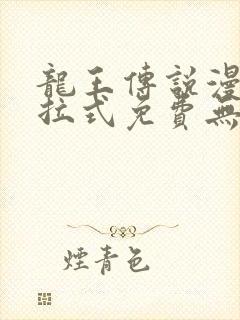 龍王傳說漫
拉式免費無
煙青色